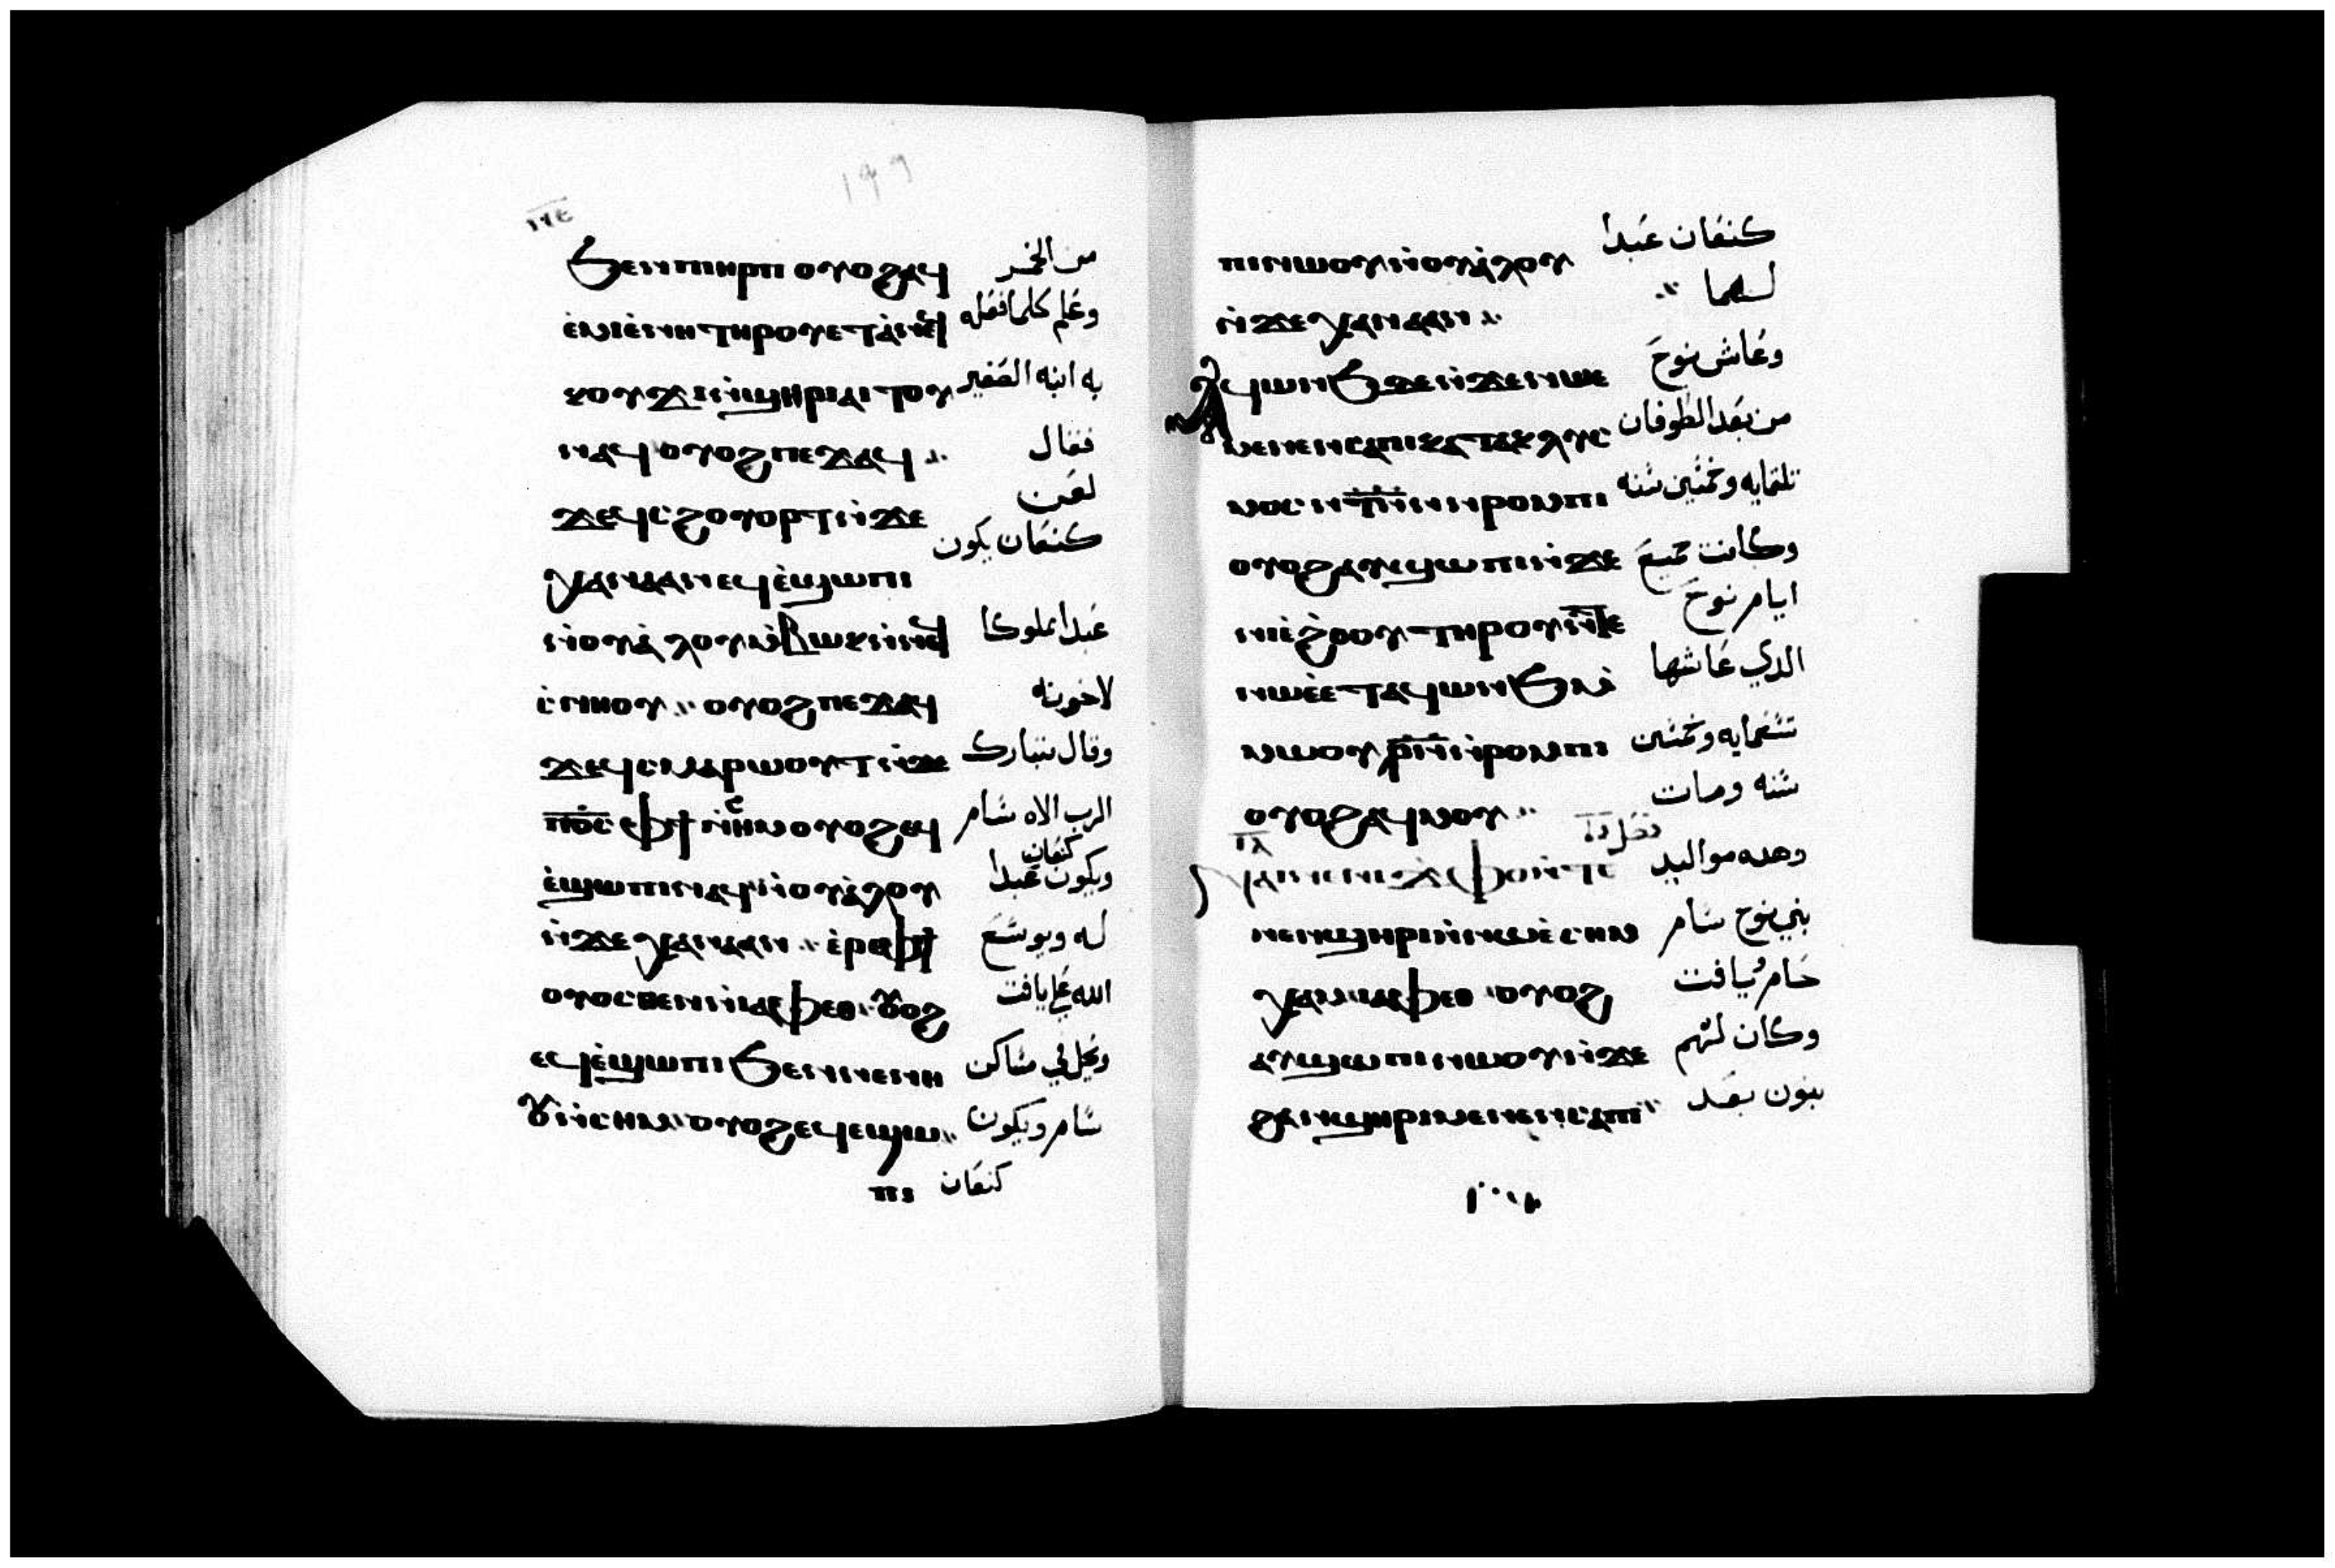 ١٩٩
١٢٤
ϧⲉⲛⲡⲓⲏⲣⲡ ⲟⲩⲟϩⲁϥ من الخمر
ⲉⲙⲓⲉⲛⲏⲧⲏⲣⲟⲩⲉⲧⲁⲡⲉϥ وعلم كلما فعله
ⲕⲟⲩϫⲓⲛϣⲏⲣⲓⲁⲓⲧⲟⲩ به ابنه الصغير
ⲛⲁϥ ⲟⲩⲟϩⲡⲉϫⲁϥ فقال
ϫⲉϥⲥϩⲟⲩⲟⲣⲧⲛϫⲉ لعن
ⲭⲁⲛⲁⲁⲛⲉϥⲉϣⲱⲡⲓ كنعان يكون
ⲛⲟⲩⲁⲗⲟⲩⲙⲃⲱⲕⲛⲛⲉϥ عبدا مملوكا
ⲥⲛⲏⲟⲩ ⲟⲩⲟϩⲡⲉϫⲁϥ لاخوته
ϫⲉϥⲥⲙⲁⲣⲱⲟⲩⲧⲛϫⲉ وقال يتبارك
ⲡϭⲥ ⲫϯ ⲛⲥⲏⲙⲟⲩⲟϩⲉϥ الرب الاه سام
ⲉϣⲱⲡⲓⲛⲁϥⲛⲟⲩⲁⲗⲟⲩ ويكون كنعان عبدا
ⲛϫⲉⲭⲁⲛⲁⲁⲛ ⲉⲣⲉⲫϯ له ويوسع
ⲟⲩⲟⲥⲑⲉⲛⲓⲁⲫⲉⲑ ⲟⲩⲟϩ الله على يافت
ⲉϥⲉϣⲱⲡⲓϧⲉⲛⲛⲉⲛⲏ ويحل في مساكن
ⲟⲩⲛⲥⲏⲙ ⲟⲩⲟϩⲉϥⲉϣⲱ سام ويكون
ⲡⲓ كنعان
ⲡⲓⲛⲱⲟⲩⲛⲟⲩⲁⲗⲟⲩ كنعان عبدا
ⲛϫⲉⲭⲁⲛⲁⲁⲛ لهما
ⲁϥⲱⲛϧⲇⲉⲛϫⲉⲛⲱⲉ وعاش نوح
ⲙⲉⲛⲉⲛⲥⲁⲡⲓⲕⲁⲧⲁⲕⲗⲩⲥ من بعد الطوفان
ⲙⲟⲥ ⲛⲧⲛ ⲛⲣⲟⲙⲡⲓ تلتمايه وخمسين سنه
ⲟⲩⲟϩⲁⲩϣⲱⲡⲓⲛϫⲉ وكانت جميع
ⲛⲓⲉϩⲟⲟⲩⲧⲏⲣⲟⲩⲛⲧⲉ ايام نوح
ⲛⲱⲉⲉⲧⲁϥⲱⲛϧ الدي عاشها
ⲙⲙⲱⲟⲩ ⲛⲣⲟⲙⲡⲓ تسعمايه وخمسين
ⲟⲩⲟϩⲁϥⲙⲟⲩ سنه ومات
فصل
ⲛⲁⲓⲛⲉⲛⲓϫⲫⲟⲛⲧⲉ وهده مواليد
ⲛⲉⲛϣⲏⲣⲓⲛⲛⲱⲉⲥⲏⲙ بني نوح سام
ⲭⲁⲙⲓⲁⲫⲉⲑ ⲟⲩⲟϩ حام ويافت
ⲁⲩϣⲱⲡⲓⲛⲱⲟⲩⲛϫⲉ وكان لهم
ϩⲁⲛϣⲏⲣⲓⲙⲉⲛⲉⲛⲥⲁⲡⲓ بنون بعد